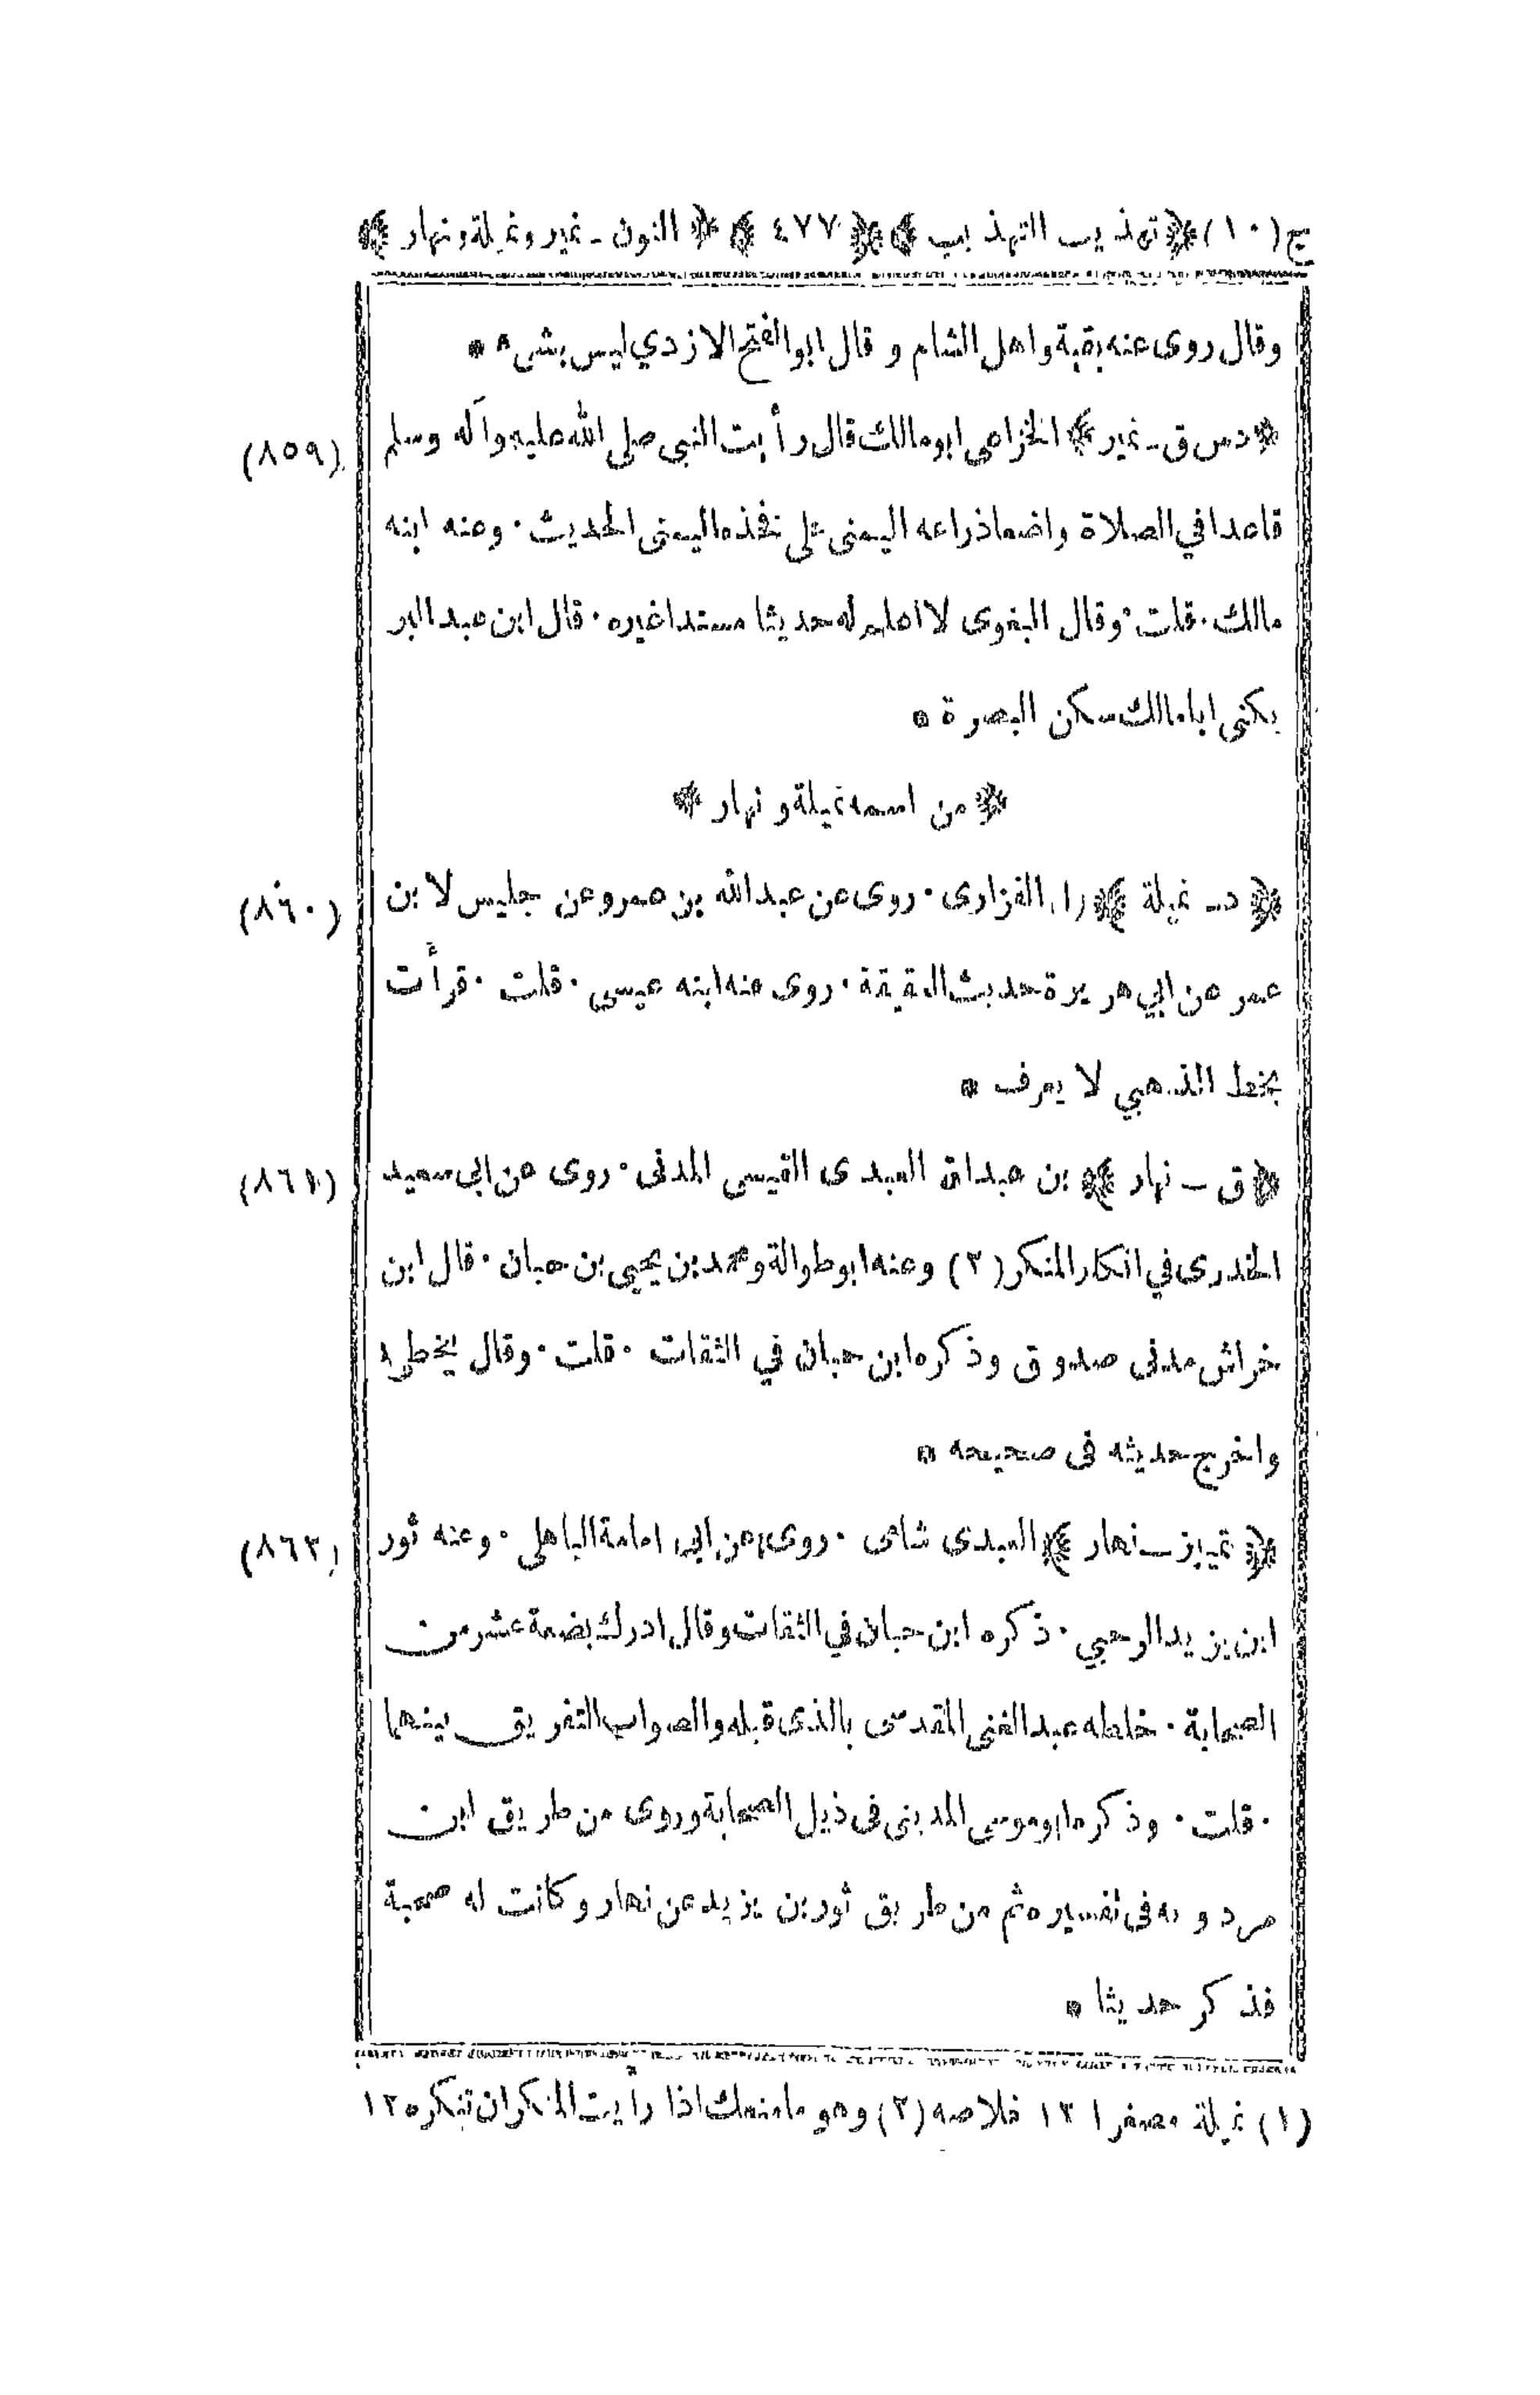 ج (١٠) ﴿ تهذيب التهذيب ﴾ ﴿ ٤٧٧ ﴾ ﴿ النون ـ نمير ونميلة ونهار ﴾
وقال روى عنه بقية واهل الشام وقال ابو الفتح الازدي ليس بشيء *
﴿ د س ق ـ نمير ﴾ الخزاعي ابو مالك قال رأيت النبي صلى الله عليه وآله وسلم (٨٥٩)
قاعدا في الصلاة واضعا ذراعه اليمنى على فخذه اليمنى الحديث ٠ وعنه ابنه
مالك ٠ قلت ٠ وقال البغوى لا اعلم له حديثا مسندا غيره ٠ قال ابن عبد البر
يكنى ابا مالك سكن البصرة *
﴿ من اسمه نميلة ونهار ﴾
﴿ د ـ نميلة ﴾ (١) الفزارى ٠ روى عن عبد الله بن عمر وعن جليس لابن (٨٦٠)
عمر عن ابي هريرة حديث القيقة ٠ روى عنه ابنه عيسى ٠ قلت ٠ قرأت
بخط الذهبي لا يعرف *
﴿ ق ـ نهار ﴾ بن عبد الله العبدى القيسى المدنى ٠ روى عن ابى سعيد (٨٦١)
الخدرى في انكار المنكر (٢) وعنه ابو طوالة ومحمد بن يحيى بن حبان ٠ قال ابن
خراش مدنى صدوق وذكره ابن حبان في الثقات ٠ قلت ٠ وقال يخطىء
واخرج حديثه فى صحيحه *
﴿ تمييز ـ نهار ﴾ العبدى شامى ٠ روى عن ابى امامة الباهلى ٠ وعنه ثور (٨٦٢)
ابن يزيد الرحبي ٠ ذكره ابن حبان في الثقات وقال ادرك بضعة عشر من
الصحابة ٠ خلطه عبد الغنى المقدسى بالذى قبله والصواب التفريق بينهما
٠ قلت ٠ وذكره ابو موسى المدينى فى ذيل الصحابة وروى من طريق ابن
مردويه فى تفسيره ثم من طريق ثور بن يزيد عن نهار وكانت له صحبة
فذكر حديثا *
(١) نميلة مصغرا ١٢ خلاصه (٢) وهو ما منعك اذا رأيت المنكر ان تنكره ١٢